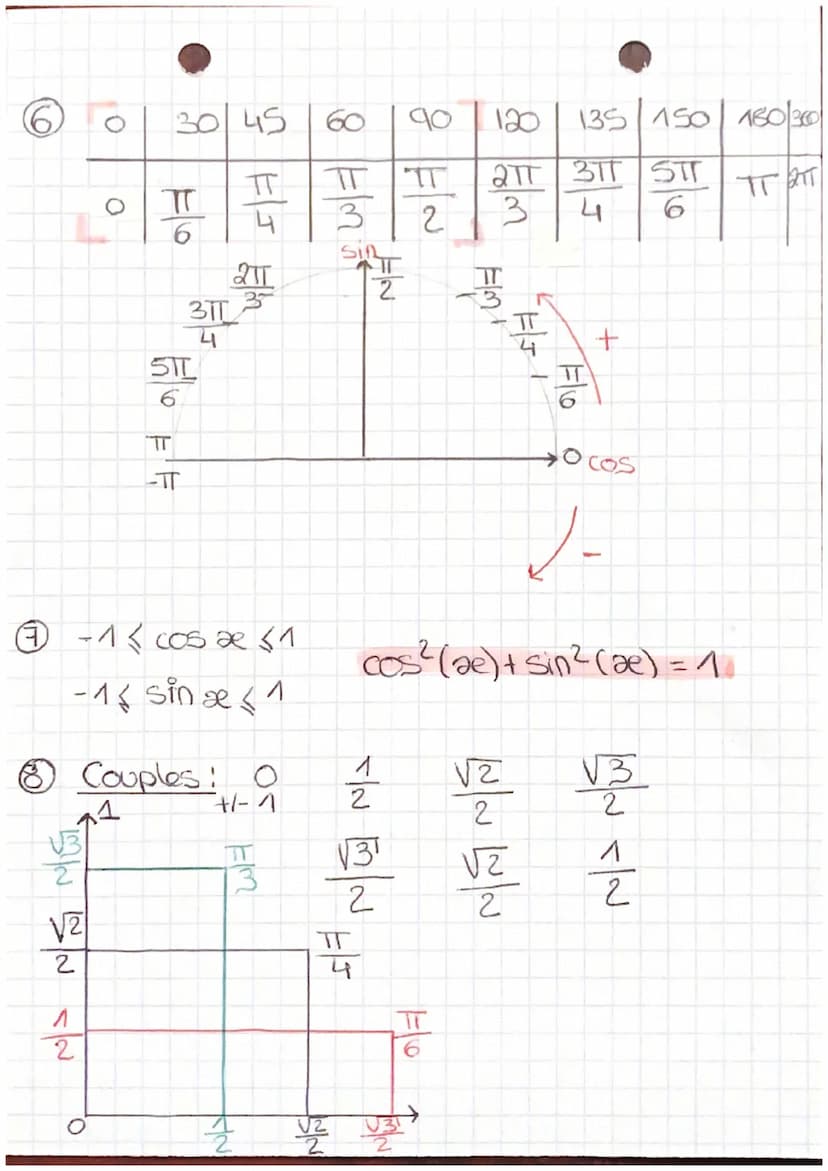 ⑥ 0 | 30 | 45 | 60 | 90 | 120 | 135 | 150 | 180 | 360
0 | π/6 | π/4 | π/3 | π/2 | 2π/3 | 3π/4 | 5π/6 | π | 2π
sin
π/2
2π/3 π/3
3π/4 π/4 +
5π/6 π/6
π
0 cos
-π
-
⑦ -1 ⩽ cos x ⩽ 1
cos²(x) + sin²(x) = 1
-1 ⩽ sin x ⩽ 1
⑧ Couples : 0 1/2 √2/2 √3/2
+/- 1 √3/2 √2/2 1/2
1
√3/2 π/3
√2/2 π/4
1/2 π/6
0 1/2 √2/2 √3/2